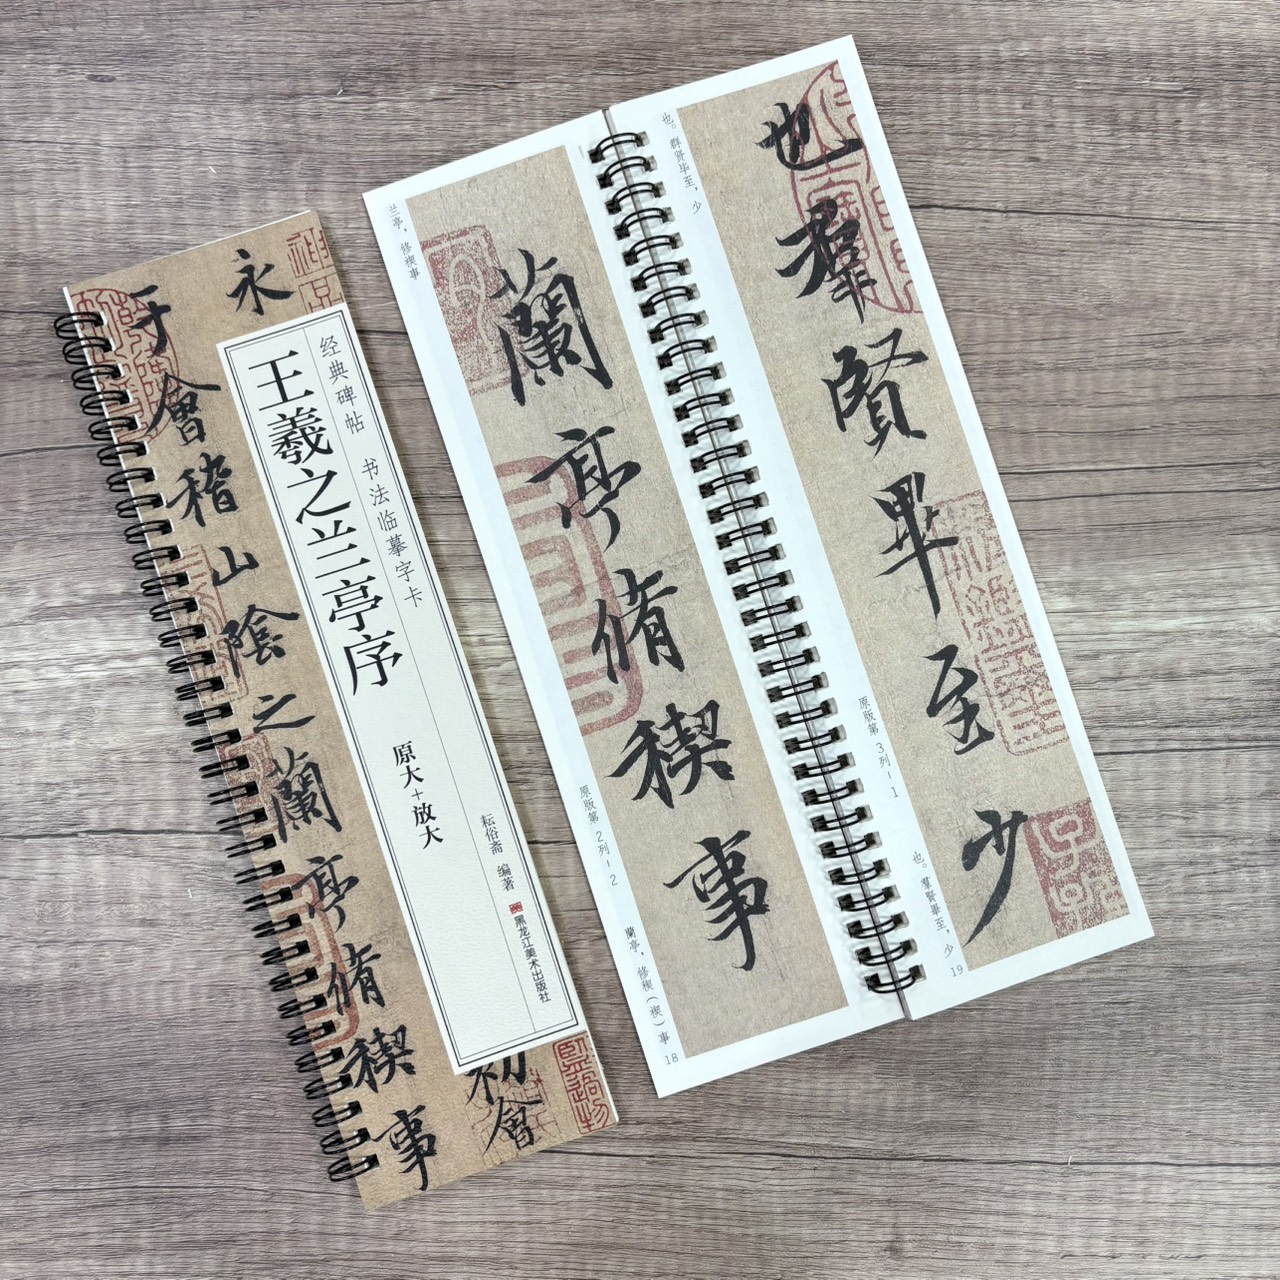 永
于會稽山陰之蘭亭脩稧事
初會
经典碑帖 书法临摹字卡
王羲之兰亭序
原大+放大
耘俗斋 编著
黑龙江美术出版社
兰亭，修禊事
蘭亭脩稧事
原版第2列-2
蘭亭，修稧（禊）事
18
也。群贤毕至，少
也羣賢畢至少
原版第3列-1
也。羣賢畢至，少
19